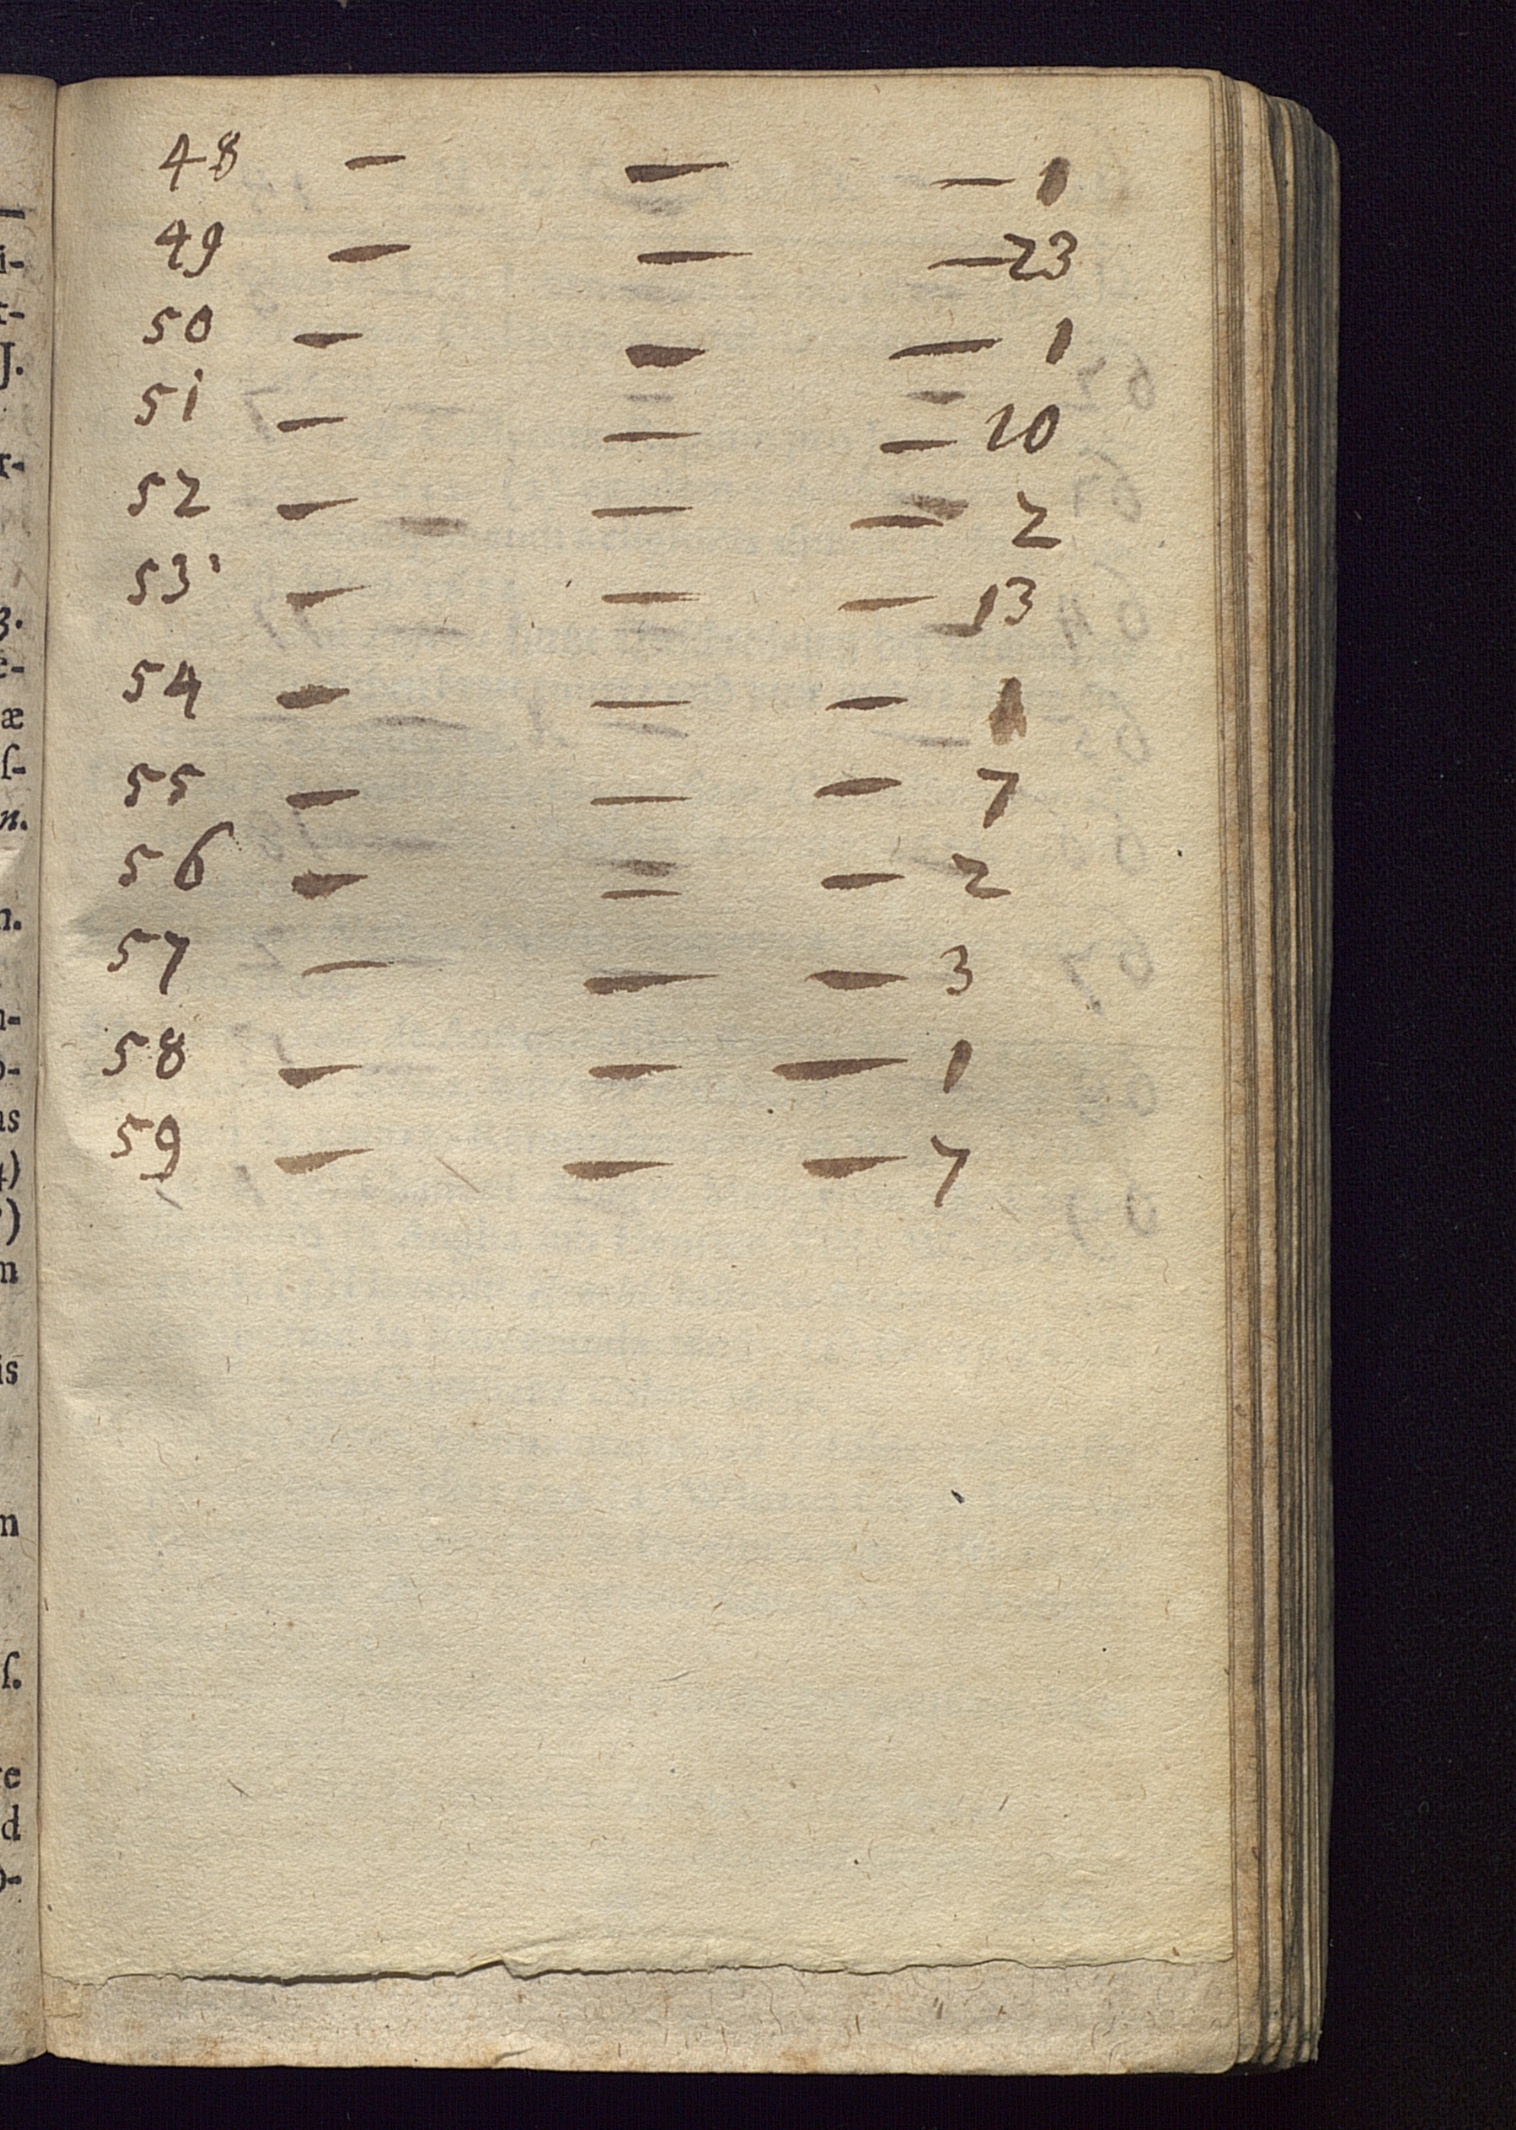 48 — — — 1
49 — — — 23
50 — — — 1
51 — — — 10
52 — — — 2
53 — — — 13
54 — — — 1
55 — — — 7
56 — — — 2
57 — — — 3
58 — — — 1
59 — — — 7